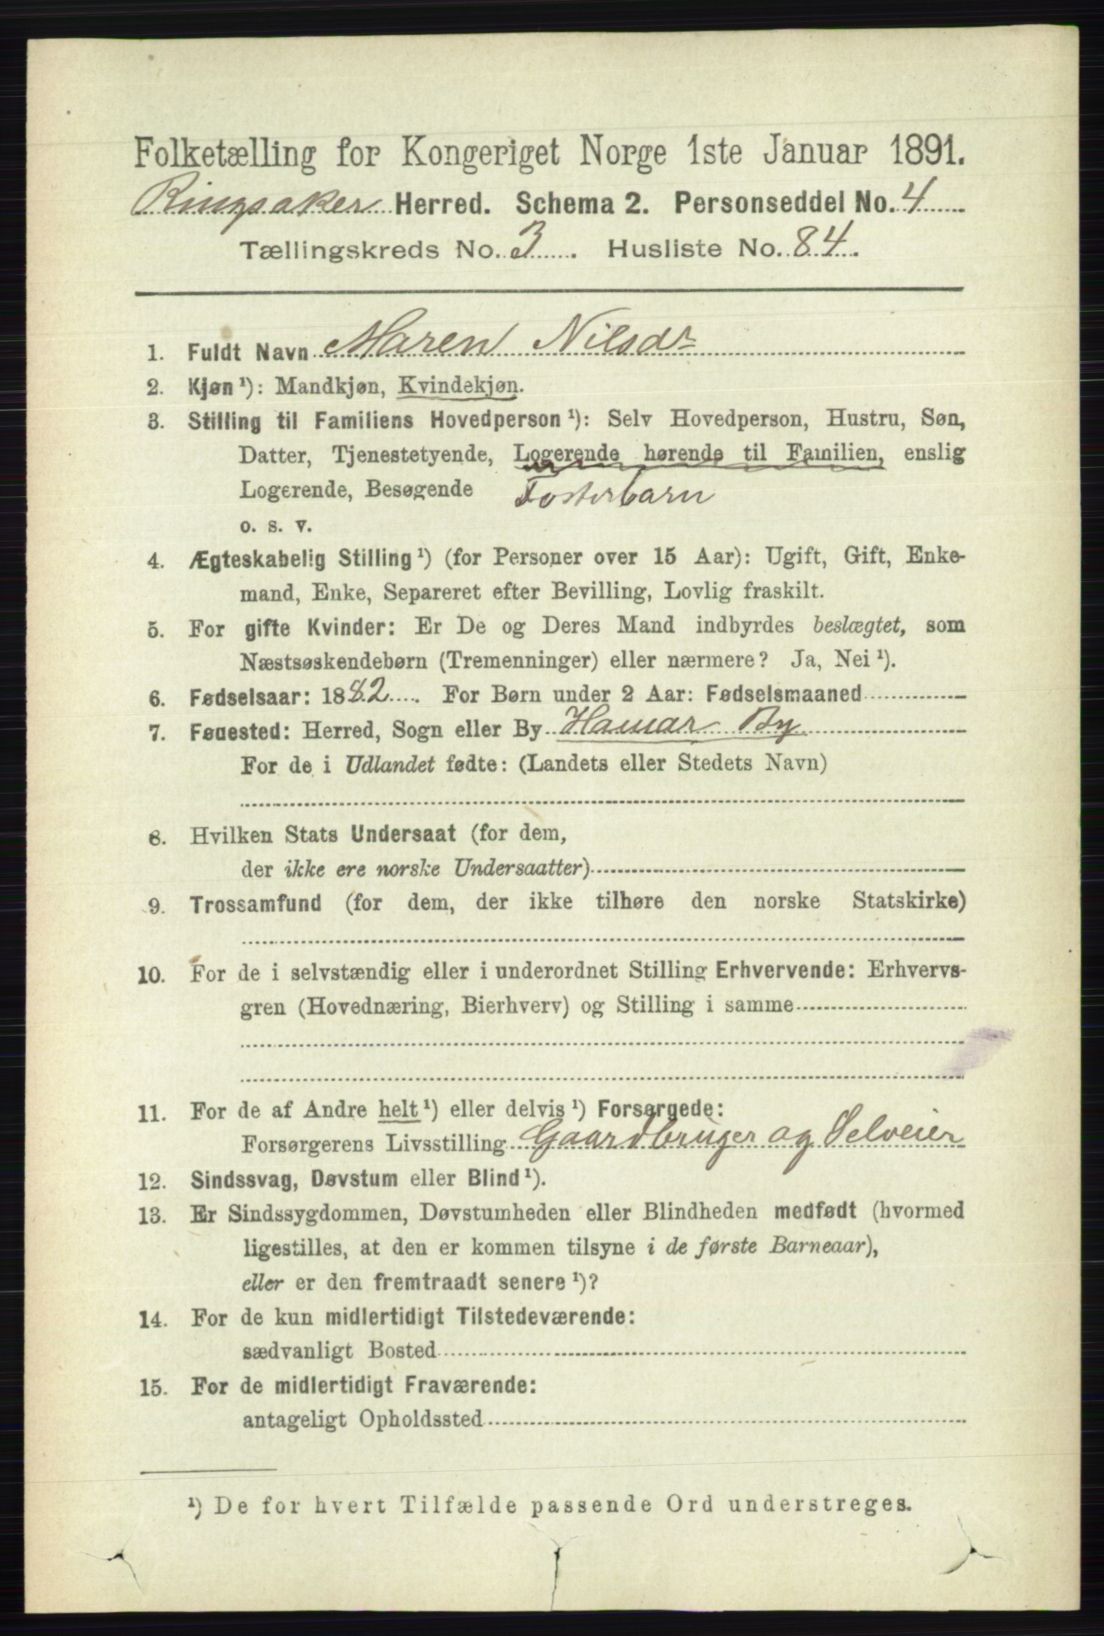 Folketælling for Kongeriget Norge 1ste Januar 1891.
Ringsaker Herred. Schema 2. Personseddel No. 4
Tællingskreds No. 3. Husliste No. 84.
1. Fuldt Navn Maren Nilsdr
2. Kjøn ¹): Mandkjøn, Kvindekjøn.
3. Stilling til Familiens Hovedperson ¹): Selv Hovedperson, Hustru, Søn,
Datter, Tjenestetyende, Logerende hørende til Familien, enslig
Logerende, Besøgende Fosterbarn
o. s. v.
4. Ægteskabelig Stilling ¹) (for Personer over 15 Aar): Ugift, Gift, Enke-
mand, Enke, Separeret efter Bevilling, Lovlig fraskilt.
5. For gifte Kvinder: Er De og Deres Mand indbyrdes beslægtet, som
Næstsøskendebørn (Tremenninger) eller nærmere? Ja, Nei ¹).
6. Fødselsaar: 1882. For Børn under 2 Aar: Fødselsmaaned
7. Fødested: Herred, Sogn eller By Hamar By
For de i Udlandet fødte: (Landets eller Stedets Navn)
8. Hvilken Stats Undersaat (for dem,
der ikke ere norske Undersaatter)
9. Trossamfund (for dem, der ikke tilhøre den norske Statskirke)
10. For de i selvstændig eller i underordnet Stilling Erhvervende: Erhvervs-
gren (Hovednæring, Bierhverv) og Stilling i samme
11. For de af Andre helt ¹) eller delvis ¹) Forsørgede:
Forsørgerens Livsstilling Gaardbruger og Selveier
12. Sindssvag, Døvstum eller Blind ¹).
13. Er Sindssygdommen, Døvstumheden eller Blindheden medfødt (hvormed
ligestilles, at den er kommen tilsyne i de første Barneaar),
eller er den fremtraadt senere ¹)?
14. For de kun midlertidigt Tilstedeværende:
sædvanligt Bosted
15. For de midlertidigt Fraværende:
antageligt Opholdssted
¹) De for hvert Tilfælde passende Ord understreges.